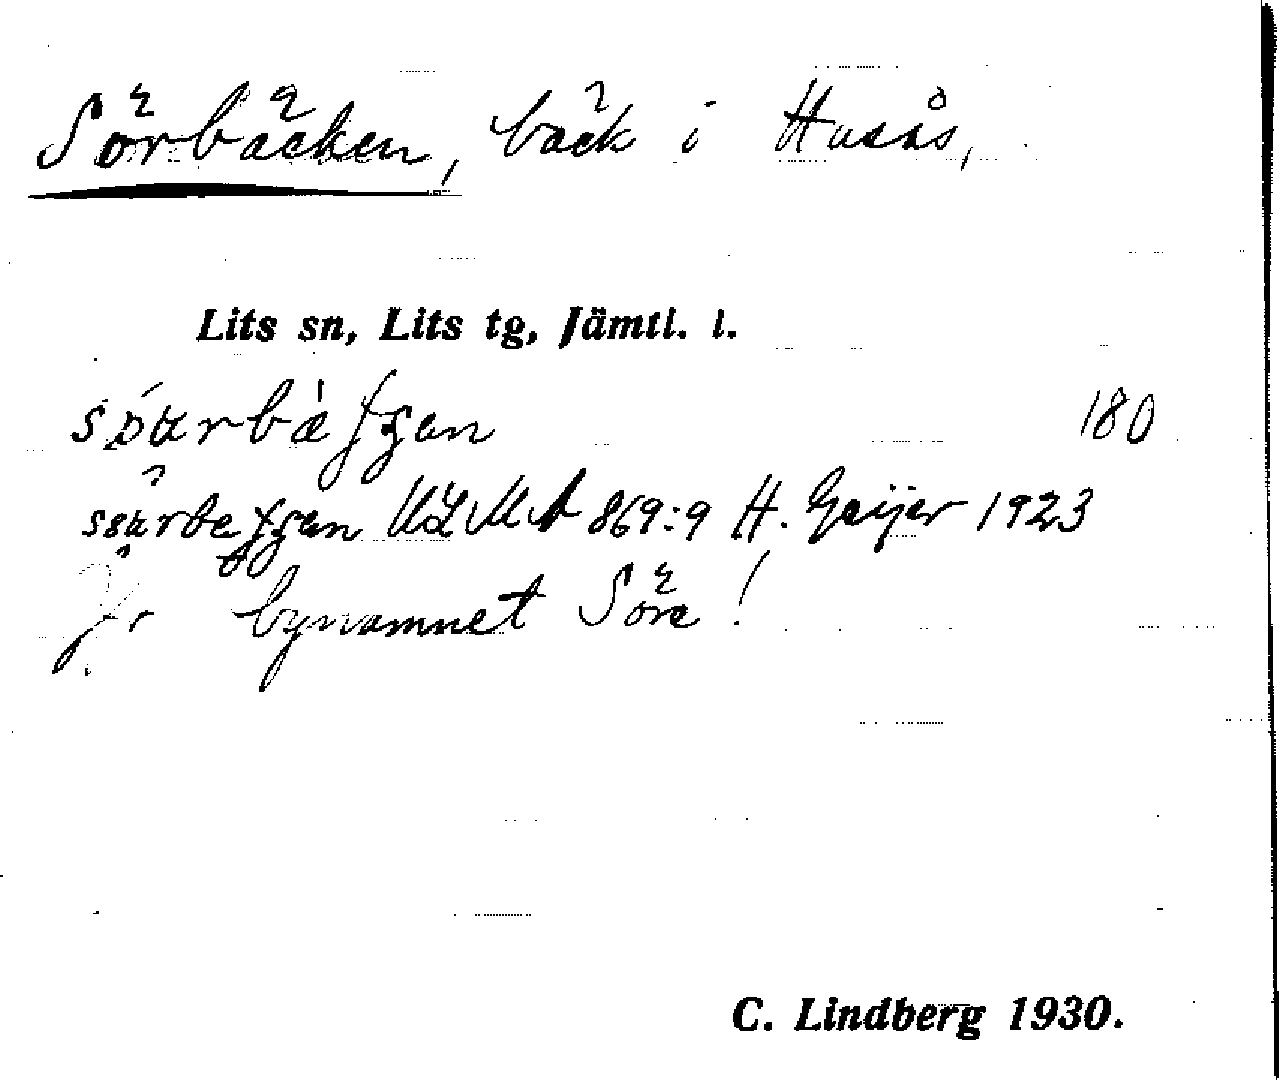 Sörbäcken, bäck i Husås,
Lits sn, Lits tg, Jämtl. l.
180
ULMA 869:9 H. Geijer 1923
Jfr bynamnet Söre!
C. Lindberg 1930.